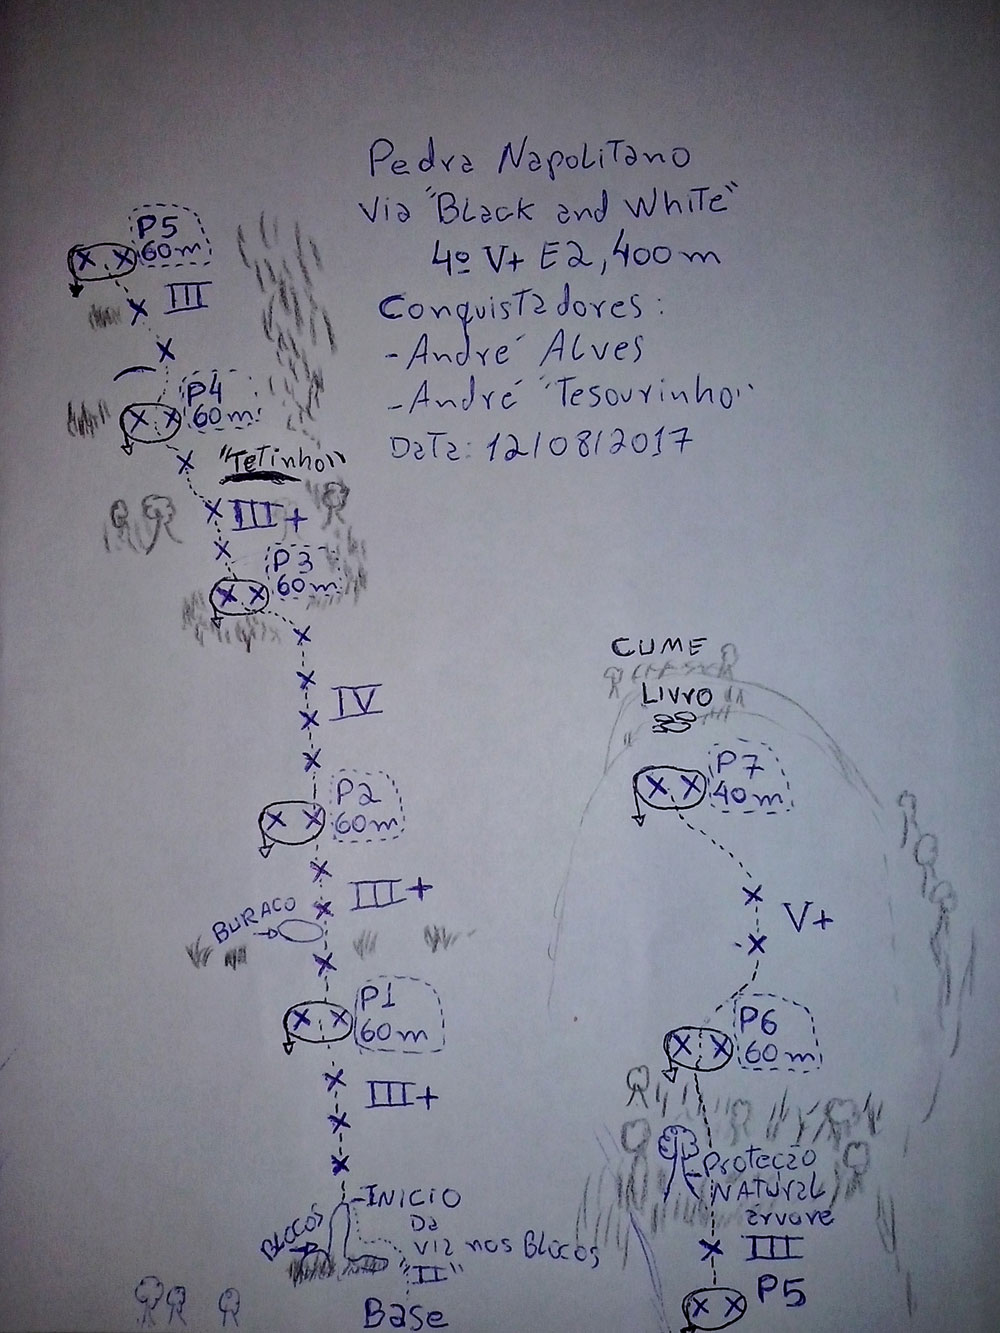 Pedra Napolitano
Via "Black and White"
4º V+ E2, 400m
Conquistadores:
- André Alves
- André "Tesourinho"
Data: 12/08/2017
P5
60m
III
P4
60m
"Tetinho"
III+
P3
60m
IV
P2
60m
III+
BURACO
P1
60m
III+
INICIO
Da
via nos Blocos
BLOCOS
"II"
Base
CUME
LIVRO
P7
40m
V+
P6
60m
Proteção
NATURAL
árvore
III
P5